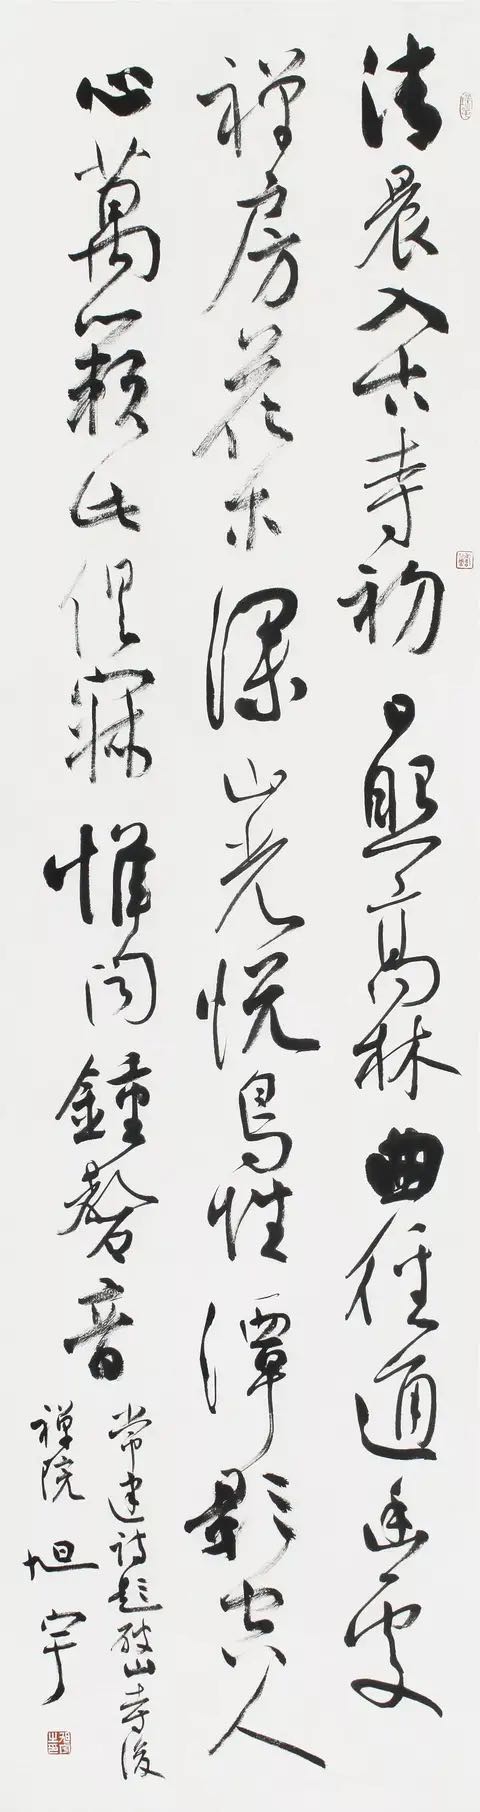 清晨入古寺初日照高林曲径通幽处
禅房花木深山光悦鸟性潭影空人
心萬籁此俱寂惟闻鐘磬音
常建诗题破山寺後
禅院 旭宇